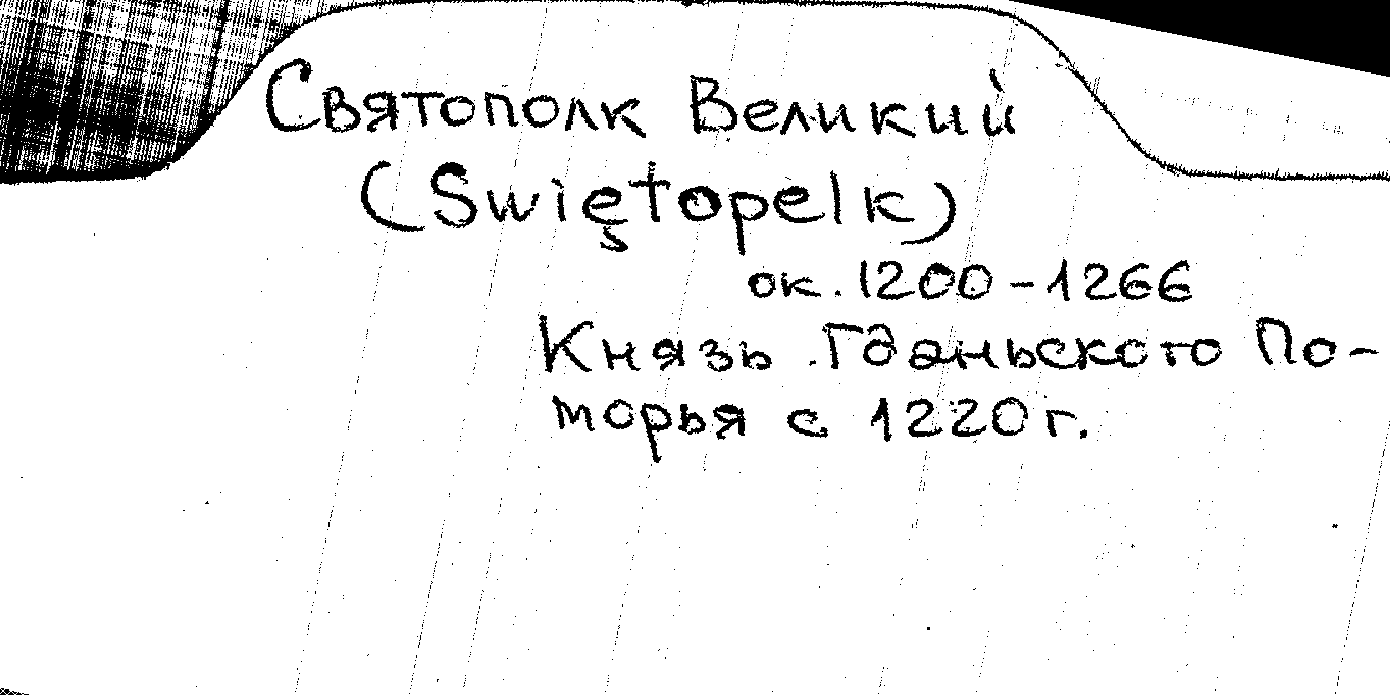 Святополк Великий
(Świętopelk)
ок. 1200-1266
Князь Гданьского По-
морья с 1220 г.